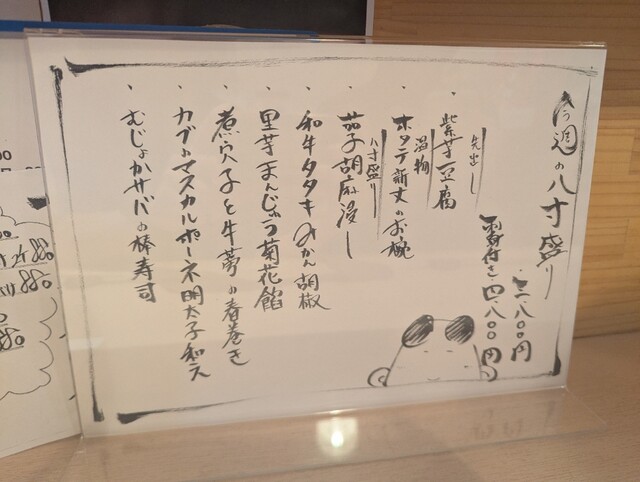 今週の八寸盛り
三、八〇〇円
刺身付き 四、八〇〇円
先出し
・紫芋豆腐
温物
・ホタテ新丈のお椀
八寸盛り
・茄子胡麻浸し
・和牛タタキ みかん胡椒
・里芋まんじゅう 菊花餡
・煮穴子と牛蒡の春巻き
・カブのマスカルポーネ明太子和え
・むじょかサバの棒寿司